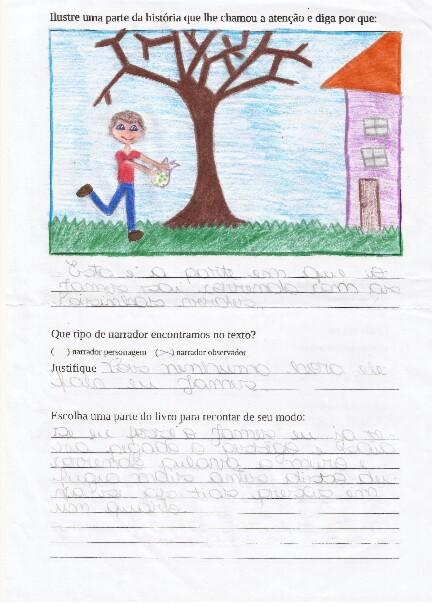 Ilustre uma parte da história que lhe chamou a atenção e diga por que:
Esta é a parte em que o
James sai correndo com as
coisinhas verdes
Que tipo de narrador encontramos no texto?
( ) narrador personagem (X) narrador observador
Justifique Pois nenhuma hora ele
fala eu James
Escolha uma parte do livro para recontar de seu modo:
Se eu fosse o James eu ja te-
ria pegado a e saia
correndo pulava o muro e
fugia mais antes disto dei-
xava as tias presas em
um quarto.